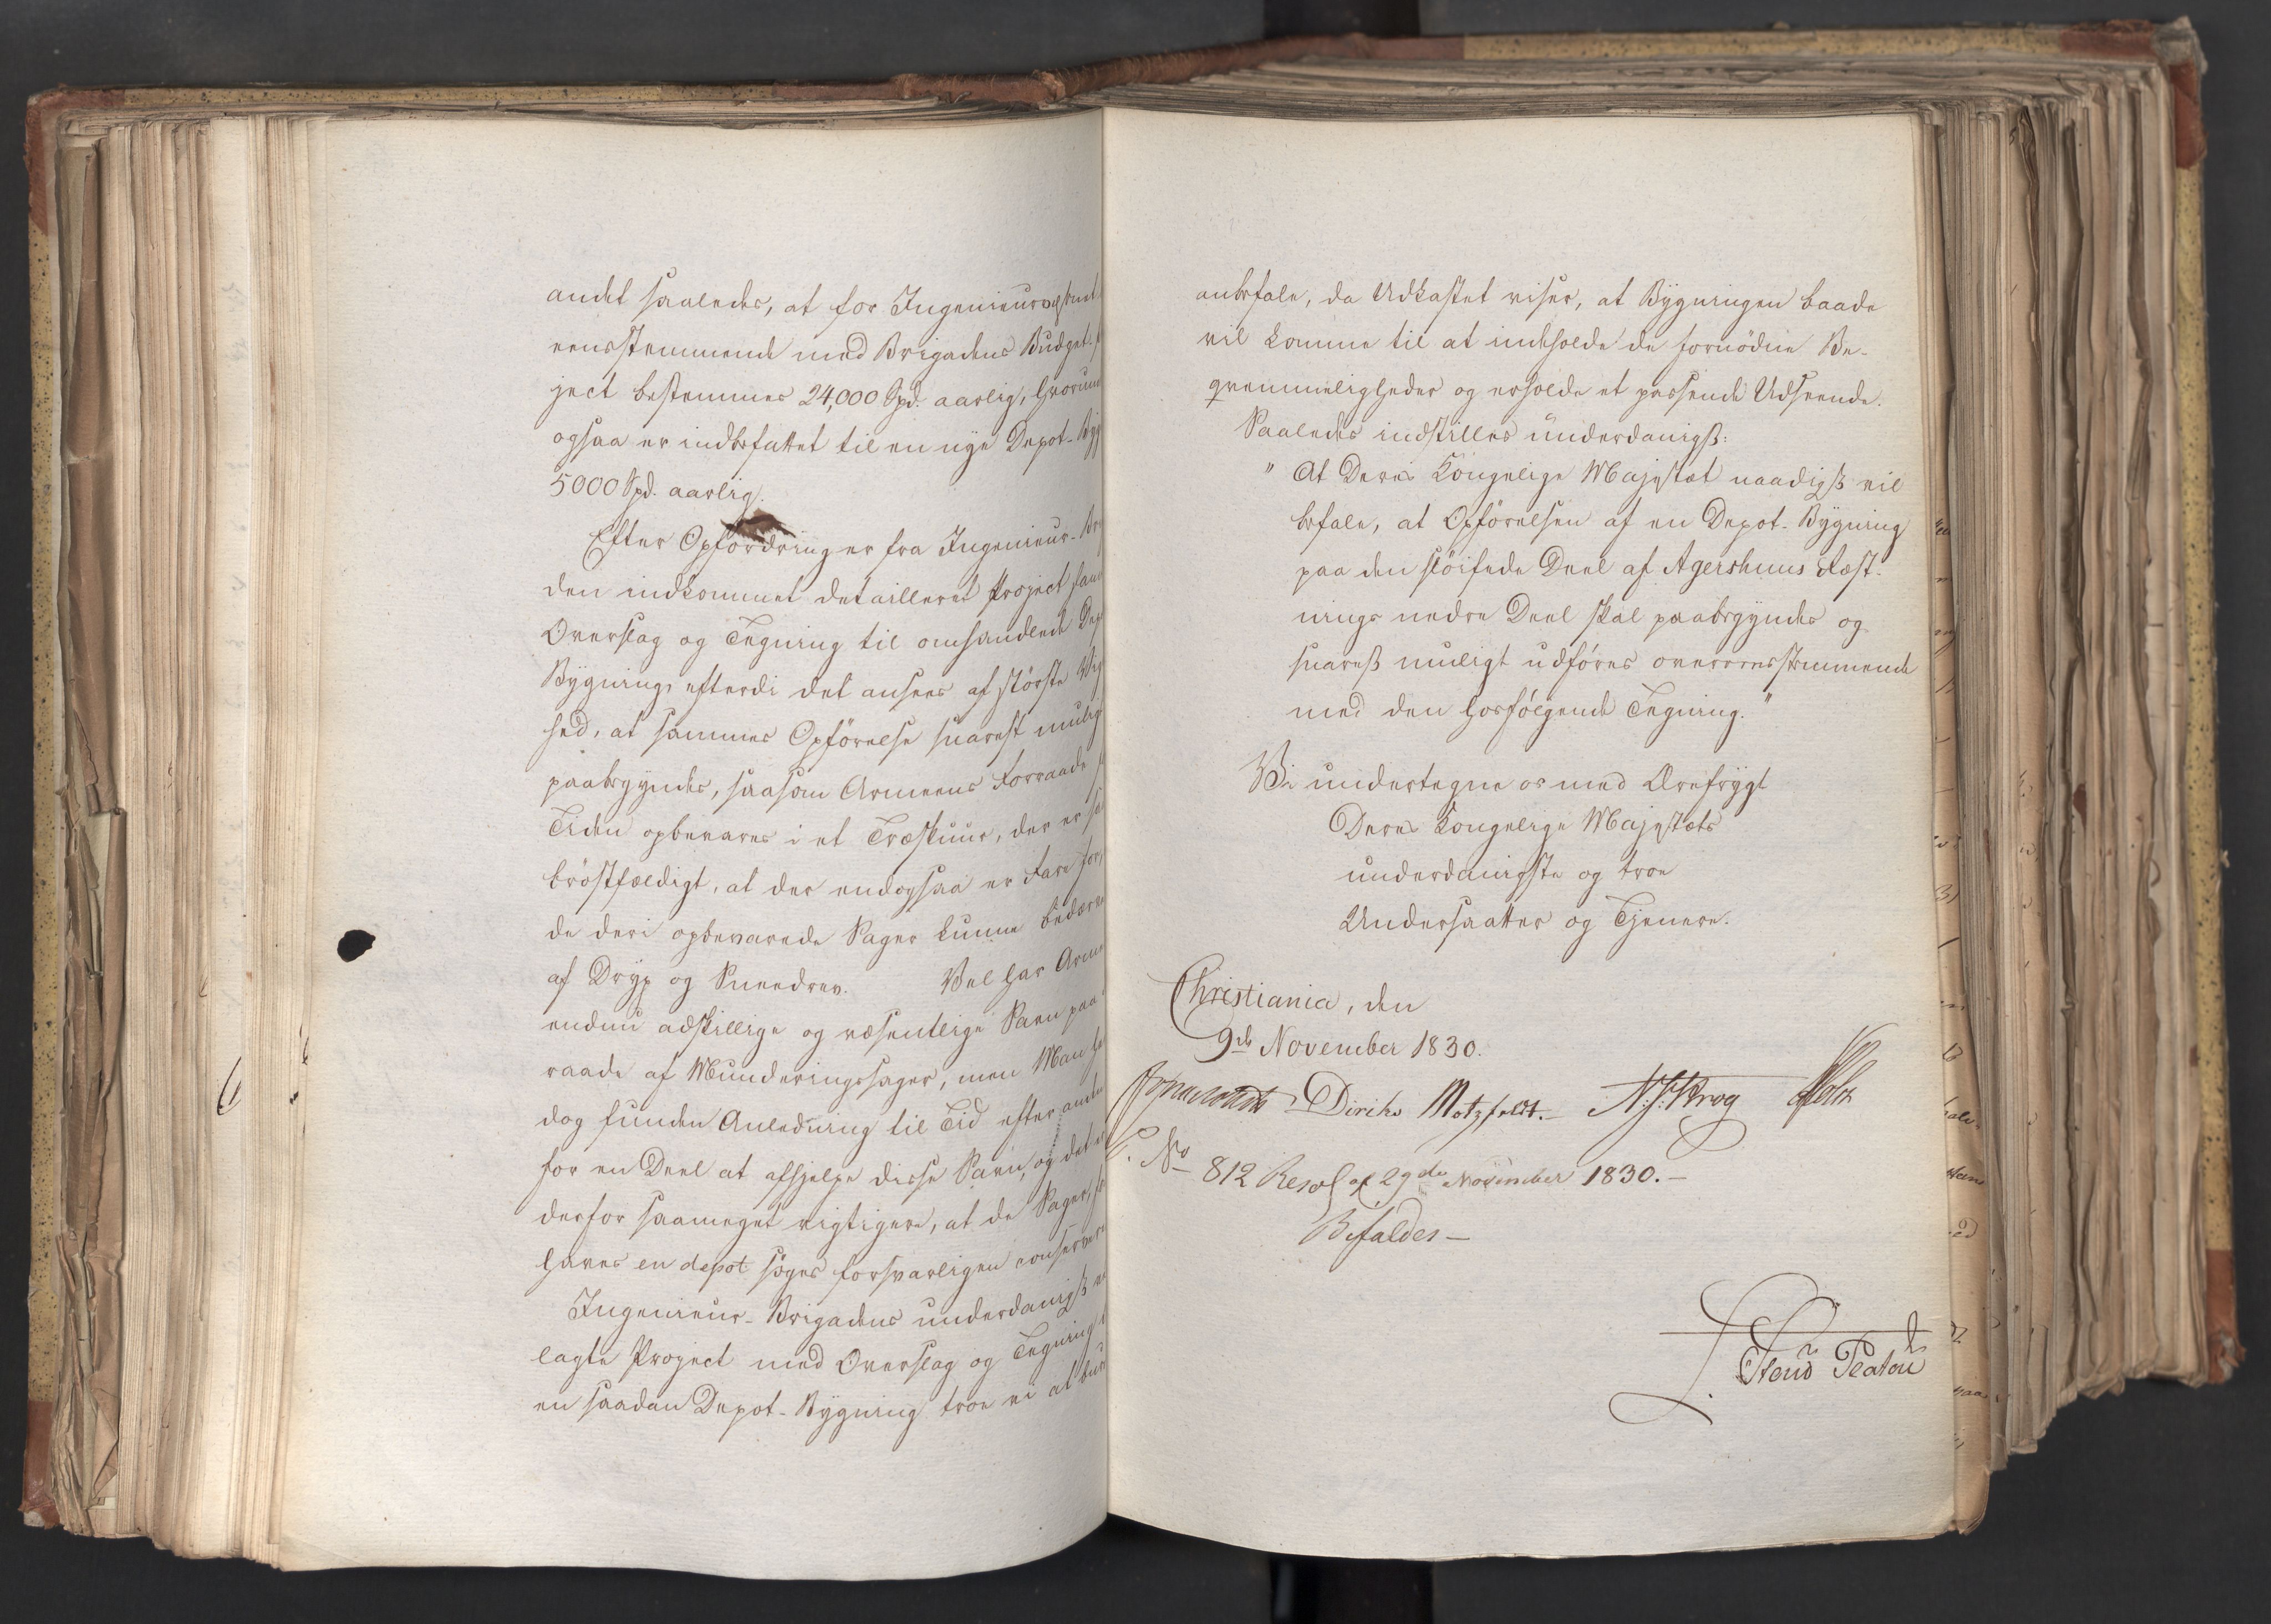 andet saaledes, at for Ingenieurvæsenet
eensstemmende med Brigadens Budget-
ject bestemmes 24,000 Spd. aarlig, hvorun
ogsaa er indbefattet til en nye Depot-Byg
5000 Spd. aarlig.
Efter Opfordring er fra Ingenieur-Br
den indkommet detailleret Project sam
Overslag og Tegning til omhandlede Dep
Bygning, efterdi det ansees af største Vig
hed, at sammes Opförelse snarest mulig
paabegyndes, saasom Armeens Forraade
Tiden opbevares i et Træskuur, der er sa
bröstfældigt, at der endogsaa er Fare for,
de deri opbevarede Sager kunne bedærve
af Dryp og Sneedrev. Vel har Arm
endnu adskillige og væsentlige Savn paa
raade af Munderingssager, men Man ha
dog funden Anledning til Tid efter anden
for en Deel at afhjelpe disse Savn, og det er
derfor saameget vigtigere, at de Sager,
haves en depot søges forsvarligen conservere
Ingenieur-Brigadens underdanigst
lagte Project med Overslag og Tegning
en saadan Depot-Bygning troe vi at bur
anbefale, da Udkastet viser, at Bygningen baade
vil komme til at indeholde de fornödne Be-
qvemmeligheder og erholde et passende Udseende.
Saaledes indstilles underdanigst:
" At Deres Kongelige Majestæt naadigst vil
befale, at Opförelsen af en Depot-Bygning
paa den slöifede Deel af Agershuus Fæst-
nings nedre Deel skal paabegyndes og
snarest muligt udföres overeensstemmende
med den hosfölgende Tegning."
Vi undertegne os med Ærefrygt
Deres Kongelige Majestæts
underdanigste og troe
Undersaatter og Tjenere.
Christiania, den
9de November 1830.
Diriks Motzfeldt. N. J. Krog Holst
P. No 812 Resol. af 29de November 1830.-
Bifaldes -